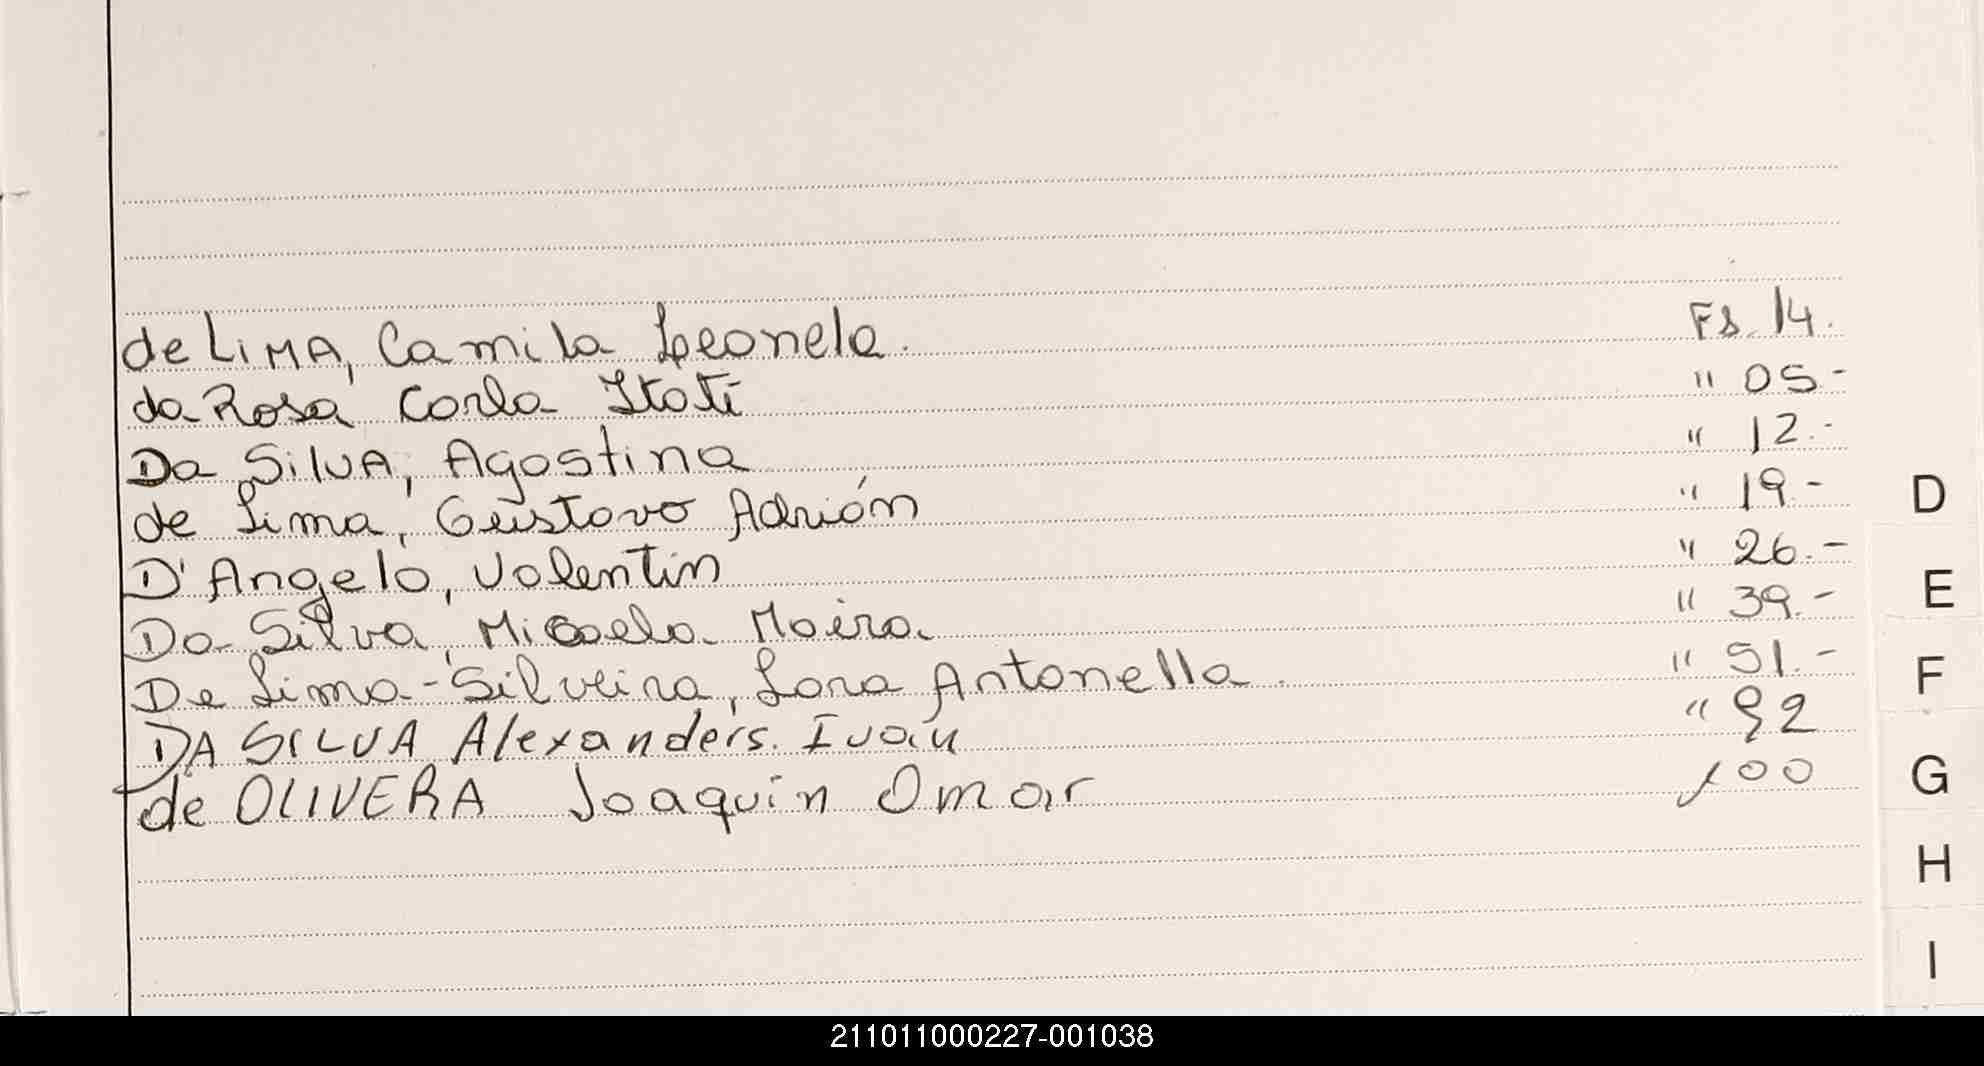 de LiMA, Camila Leonela. Fs. 14.
da Rosa Carla Itatí " 05.-
Da SilvA, Agostina " 12.-
de Lima, Gustavo Adrián " 19.-
D
D'Angelo, Valentin " 26.-
Da Silva, Micaela Maira. " 39.-
E
De Lima-Silveira, Lara Antonella. " 51.-
F
DA SILVA Alexanders. Ivan " 92
de OLIVERA Joaquin Omar 100
G
H
I
211011000227-001038